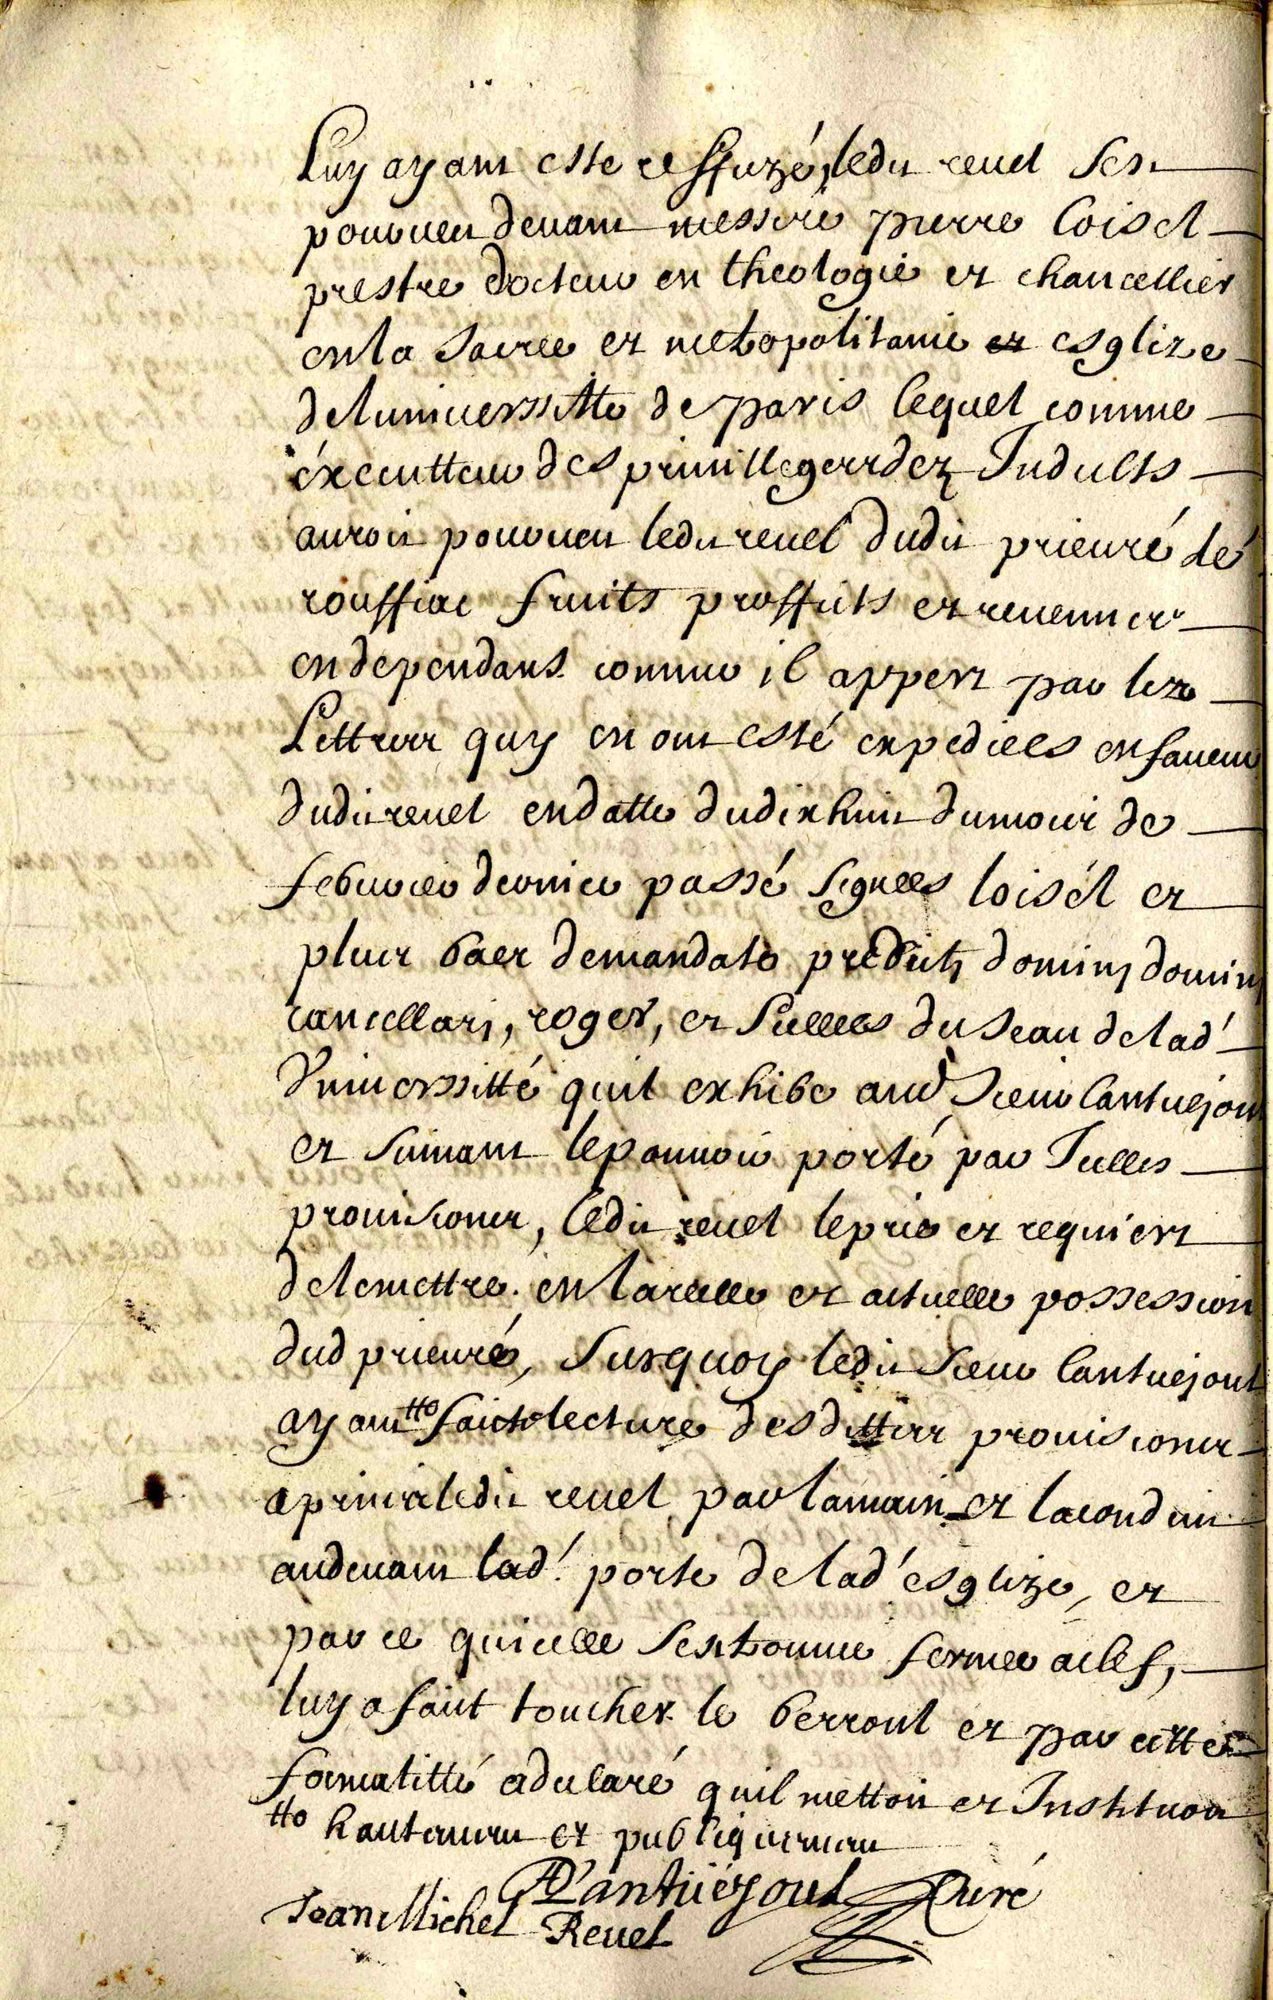 Luy ayant esté reffuzé, ledit revel sest
pourveu devant messire pierre loisel
prestre docteur en theologie et chancellier
en la sacree et metropolitanie esglize
de luniverssitte de paris lequel comme
éxecutteur des privilleges et dez Indults
auroit pourveu ledit revel dudit prieuré de
rouffiac fruits proffiits et revenner
en dependans comme il appert par lez
Lettres quy en ont esté expediees en faveur
dudit revel en datte du dix huit du mois de
febvrier dernier passé signees loisél et
plus baer de mandato predicti domini domini
cancellari, roger, et seelles du seau de lad'
Universsitté quil exhibe aud sieur Cantuejoul
et suivant le pouvoir porté par Icelles
provisiones, ledit revel le prie et requiert
de le mettre en la reelle et actuelle possession
dud prieuré, surquoy ledit sieur Cantuejoul
ayant tto faicte lecture desdittes provisiones
a prins ledit revel par la main et la conduit
au devant lad' porte de lad' esglize, et
par ce quicelle sest trouvee fermee a clef,
luy a fait toucher le verroul et par cette
formalitté a declaré quil mettoit et Instituoit
tto hautement et publiquement
Cantuéjoul Curé
Jean Michel Revel